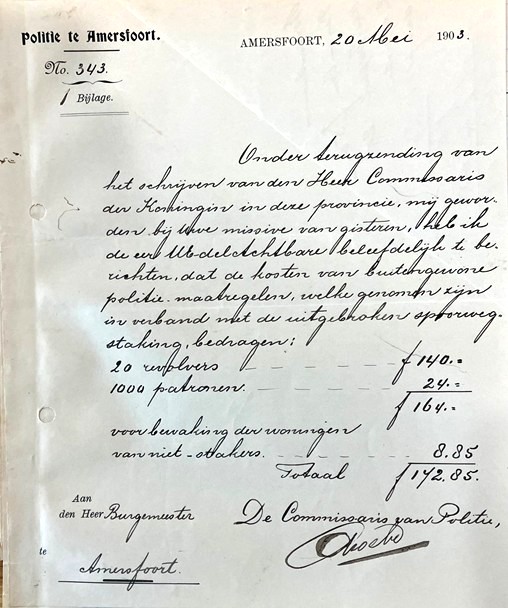 Politie te Amersfoort.
AMERSFOORT, 20 Mei 1903.
No. 343.
1 Bijlage.
Onder terugzending van
het schrijven van den Heer Commissaris
der Koningin in deze provincie, mij gewor-
den bij Uwe missive van gisteren, heb ik
de eer UEdelAchtbare beleefdelijk te be-
richten, dat de kosten van buitengewone
politie-maatregelen, welke genomen zijn
in verband met de uitgebroken spoorweg-
staking, bedragen:
20 revolvers f 140.=
1000 patronen. 24.=
f 164.=
voor bewaking der woningen
van niet-stakers. 8.85
Totaal f 172.85.
Aan
den Heer Burgemeester
te
Amersfoort.
De Commissaris van Politie,